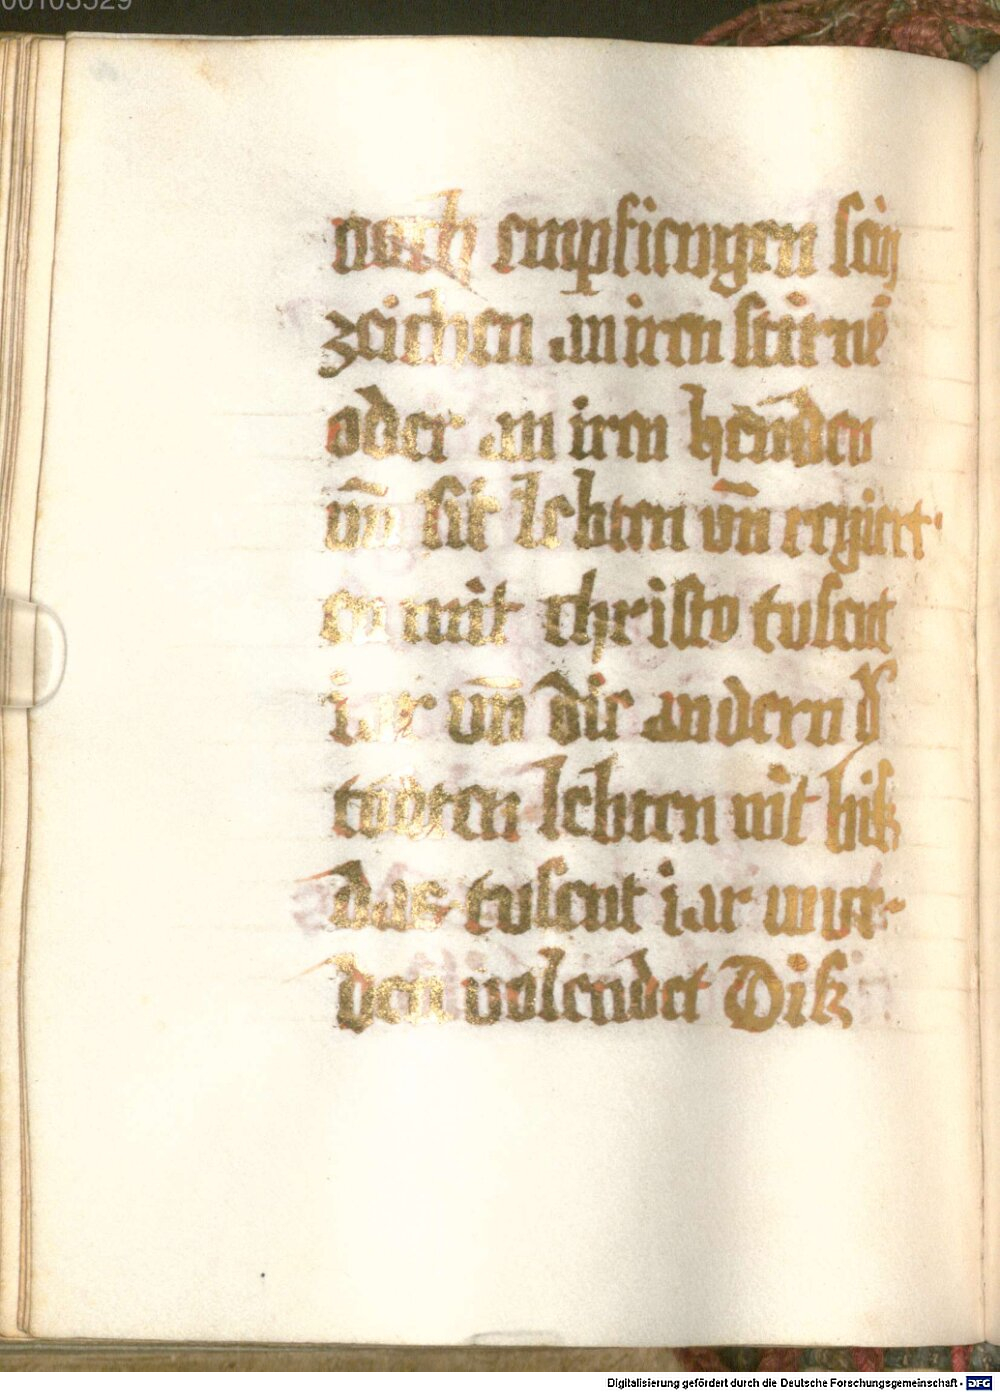 00103529
noch empfiengen sein
zeichen an iren stirnē
oder an iren henden
vn̄ sie lebten vn̄ regiert
en mit christo tusent
iar vn̄ die andern d̕
todten lebten nit bis
das tusent iar wur-
den volendet Dis
Digitalisierung gefördert durch die Deutsche Forschungsgemeinschaft - DFG